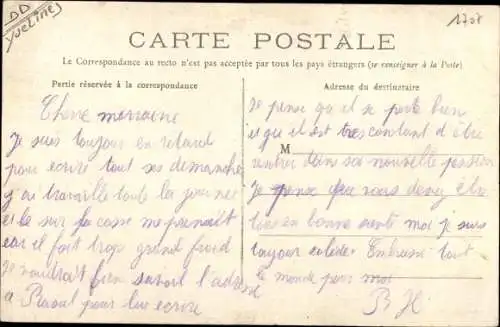 DD
Yvelines
1708
CARTE POSTALE
Le Correspondance au recto n'est pas acceptée par tous les pays étrangers (se renseigner à la Poste)
Partie réservée à la correspondance
Chere marraine
Je suis toujour en retard
pour ecrire tout ses demanches
j'ai travaille toute la journee
et le sur sa casse me prenait
car il fait trop grand froid
Je voudrait bien savoir l'adresse
a Raoul pour lui ecrire
Adresse du destinataire
Je pense qu il se porte bien
et que il est tres constant d être
M
rentrer dans sa nouvelle position
Je pense que vous devez être
tous en bonne sante moi je suis
toujour solide. Embrasse tout
le monde pour moi
B H